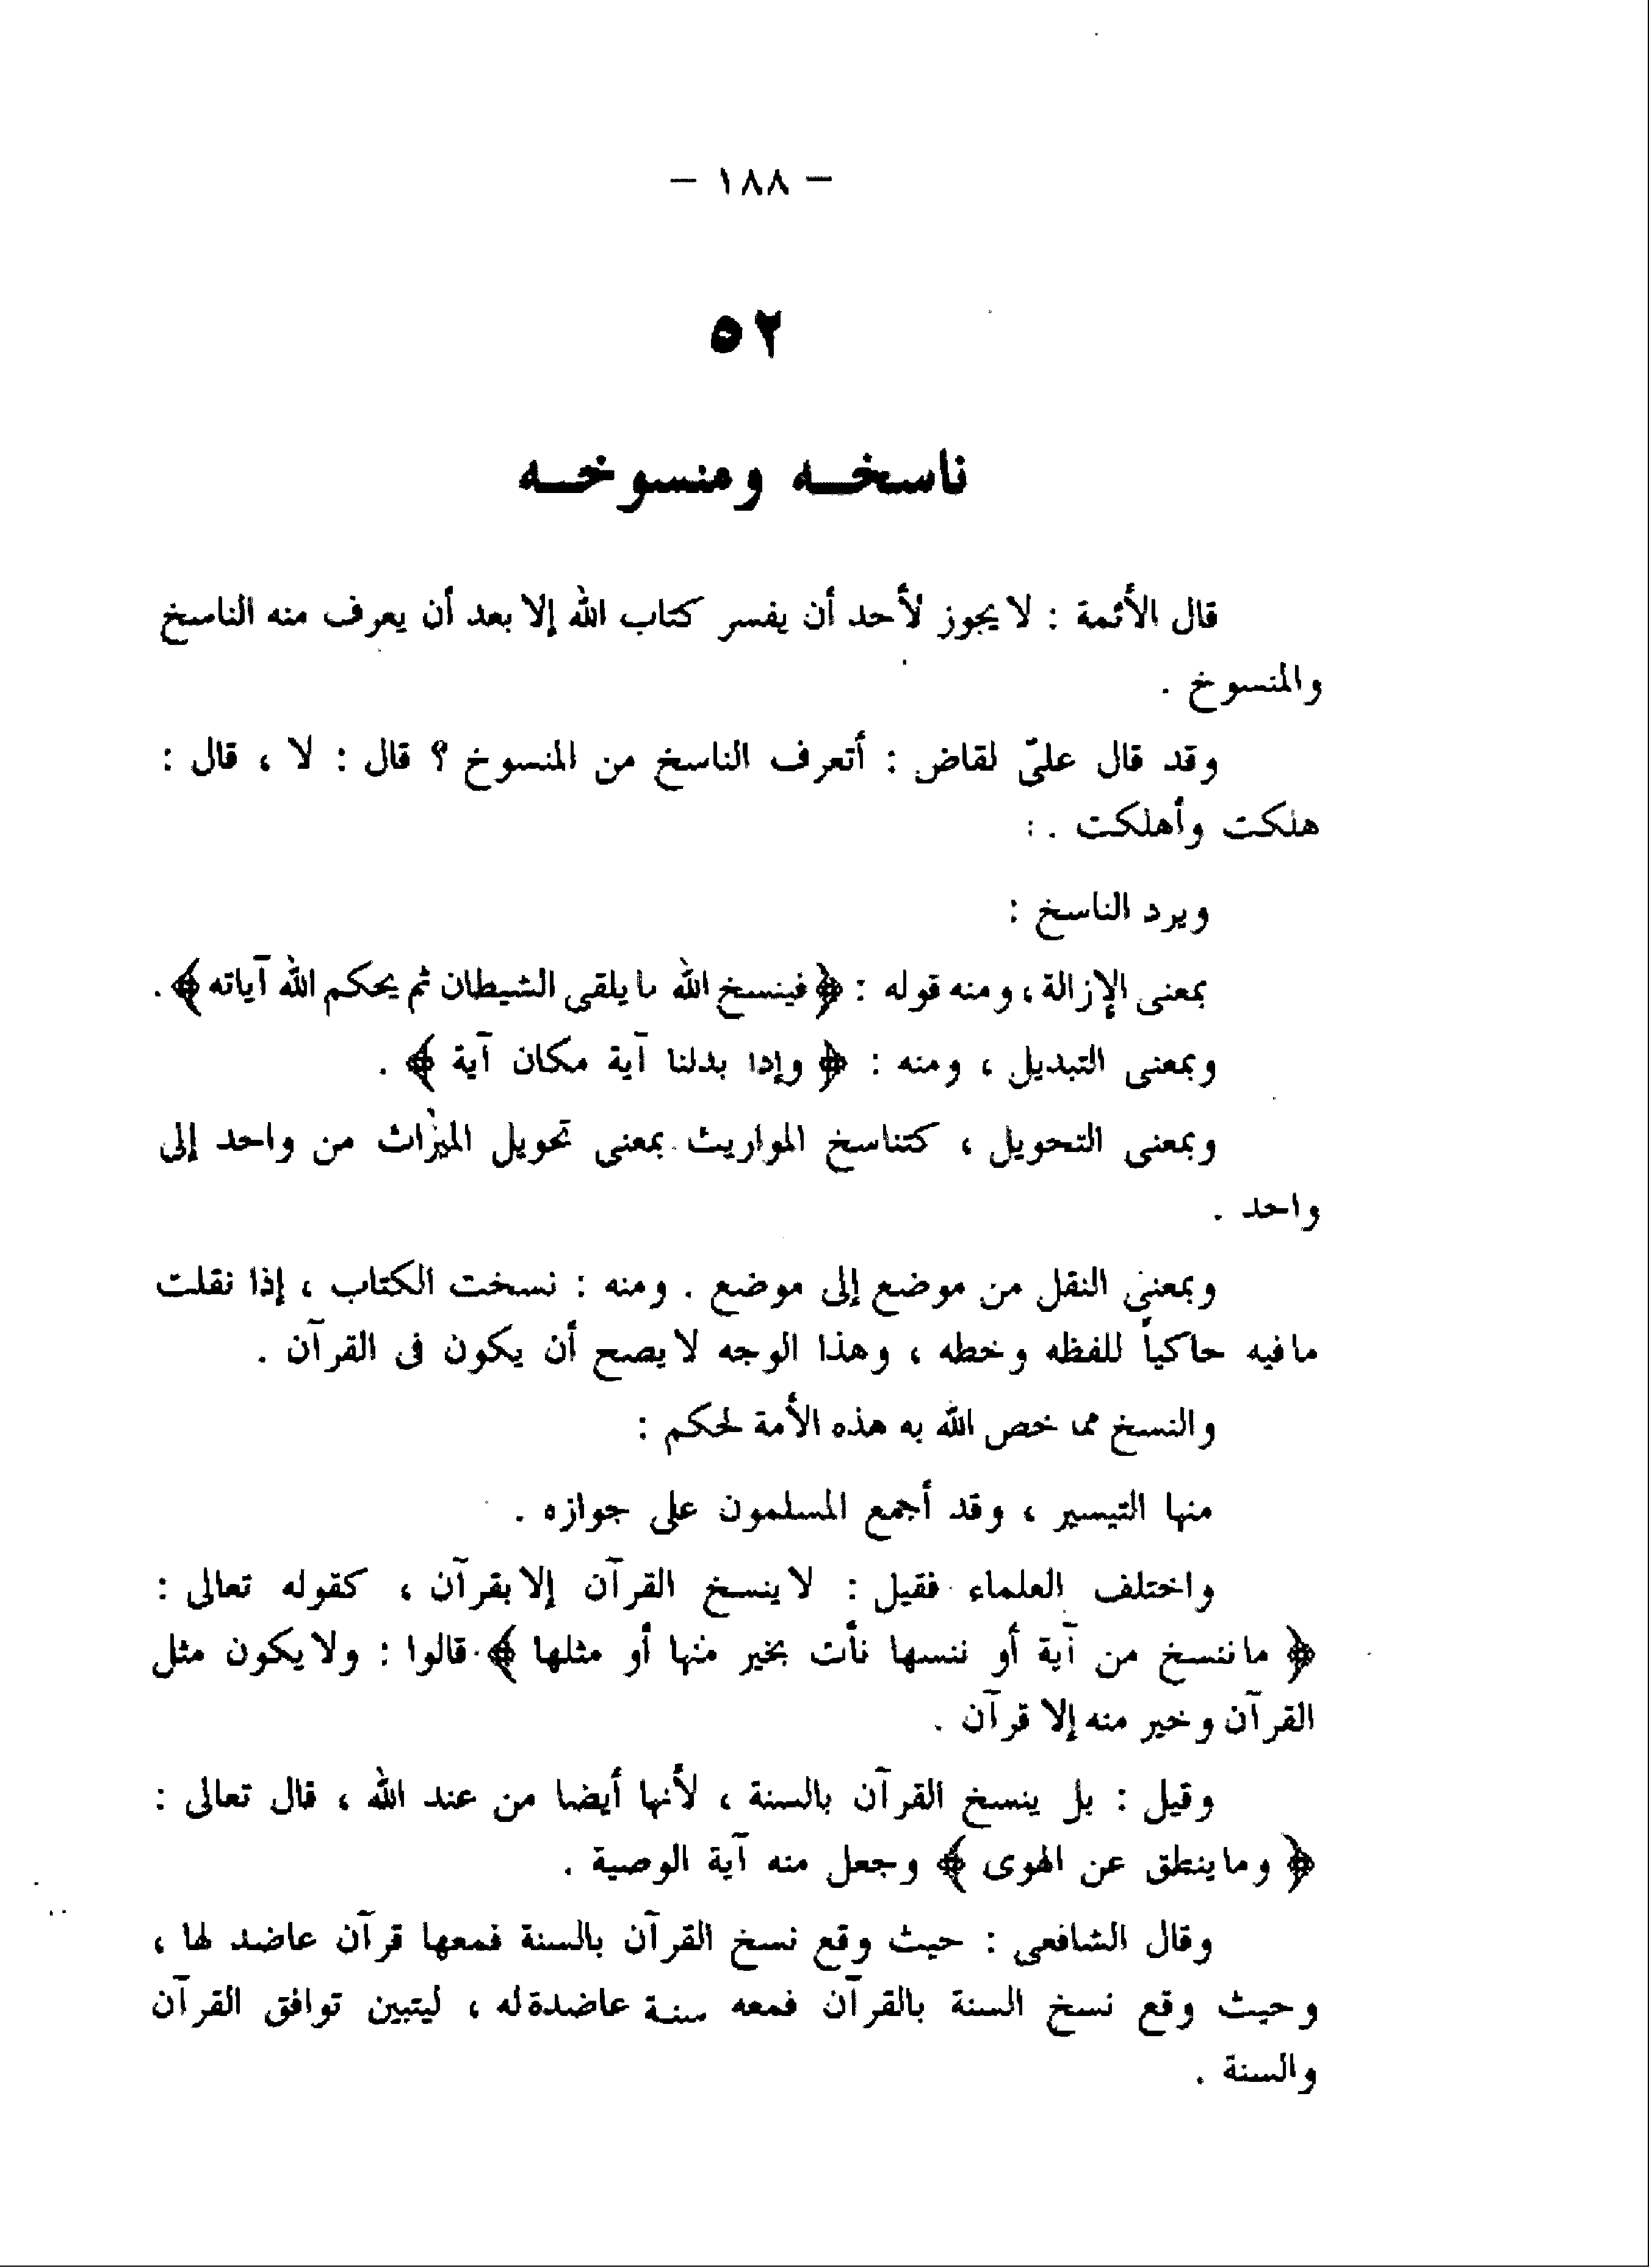 — ١٨٨ —
٥٢
ناسخه ومنسوخه
قال الأئمة : لا يجوز لأحد أن يفسر كتاب الله إلا بعد أن يعرف منه الناسخ
والمنسوخ .
وقد قال علىّ لقاض : أتعرف الناسخ من المنسوخ ؟ قال : لا ، قال :
هلكت وأهلكت . :
ويرد الناسخ :
بمعنى الإزالة ، ومنه قوله : ﴿ فينسخ الله ما يلقى الشيطان ثم يحكم الله آياته ﴾ .
وبمعنى التبديل ، ومنه : ﴿ وإذا بدلنا آية مكان آية ﴾ .
وبمعنى التحويل ، كتناسخ المواريث بمعنى تحويل الميراث من واحد إلى
واحد .
وبمعنى النقل من موضع إلى موضع . ومنه : نسخت الكتاب ، إذا نقلت
ما فيه حاكياً للفظه وخطه ، وهذا الوجه لا يصح أن يكون فى القرآن .
والنسخ مما خص الله به هذه الأمة لحكم :
منها التيسير ، وقد أجمع المسلمون على جوازه .
واختلف العلماء فقيل : لا ينسخ القرآن إلا بقرآن ، كقوله تعالى :
﴿ ما ننسخ من آية أو ننسها نأت بخير منها أو مثلها ﴾ قالوا : ولا يكون مثل
القرآن وخير منه إلا قرآن .
وقيل : بل ينسخ القرآن بالسنة ، لأنها أيضا من عند الله ، قال تعالى :
﴿ وما ينطق عن الهوى ﴾ وجعل منه آية الوصية .
وقال الشافعى : حيث وقع نسخ القرآن بالسنة فمعها قرآن عاضد لها ،
وحيث وقع نسخ السنة بالقرآن فمعه سنة عاضدة له ، ليتبين توافق القرآن
والسنة .